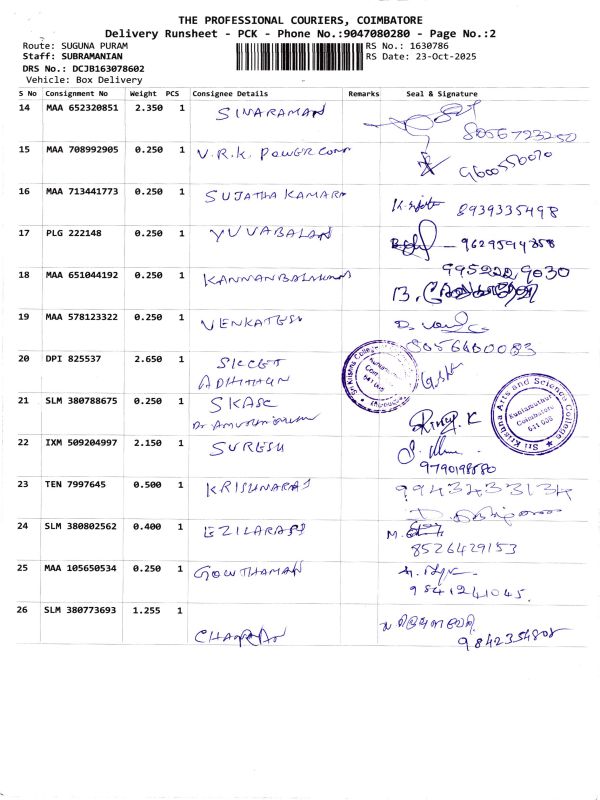 THE PROFESSIONAL COURIERS, COIMBATORE
Delivery Runsheet - PCK - Phone No.:9047080280 - Page No.:2
Route: SUGUNA PURAM
RS No.: 1630786
Staff: SUBRAMANIAN
RS Date: 23-Oct-2025
DRS No.: DCJB163078602
Vehicle: Box Delivery
S No Consignment No Weight PCS Consignee Details Remarks Seal & Signature
14 MAA 652320851 2.350 1 SIVARAMAN
8056723250
15 MAA 708992905 0.250 1 V.R.K. POWER CONP
9600550070
16 MAA 713441773 0.250 1 SUJATHA KAMARA
8939335498
17 PLG 222148 0.250 1 YUVABALAN
9629594358
18 MAA 651044192 0.250 1 9952229030
B.
19 MAA 578123322 0.250 1 VENKATESH
8056600083
20 DPI 825537 2.650 1 SKCET
ADHITHYN
Sri Krishna College
Coimbatore
641 008
21 SLM 380788675 0.250 1 SKASC
Dr
Sri Krishna Arts and Science College
Kuniamuthur
Coimbatore
641 008
22 IXM 509204997 2.150 1 SURESH
9790198580
23 TEN 7997645 0.500 1 KRISHNARAJ 9943433134
24 SLM 380802562 0.400 1 EZILARASI M.
8526429153
25 MAA 105650534 0.250 1 GOWTHAMAN
9541241045
26 SLM 380773693 1.255 1
9842354808